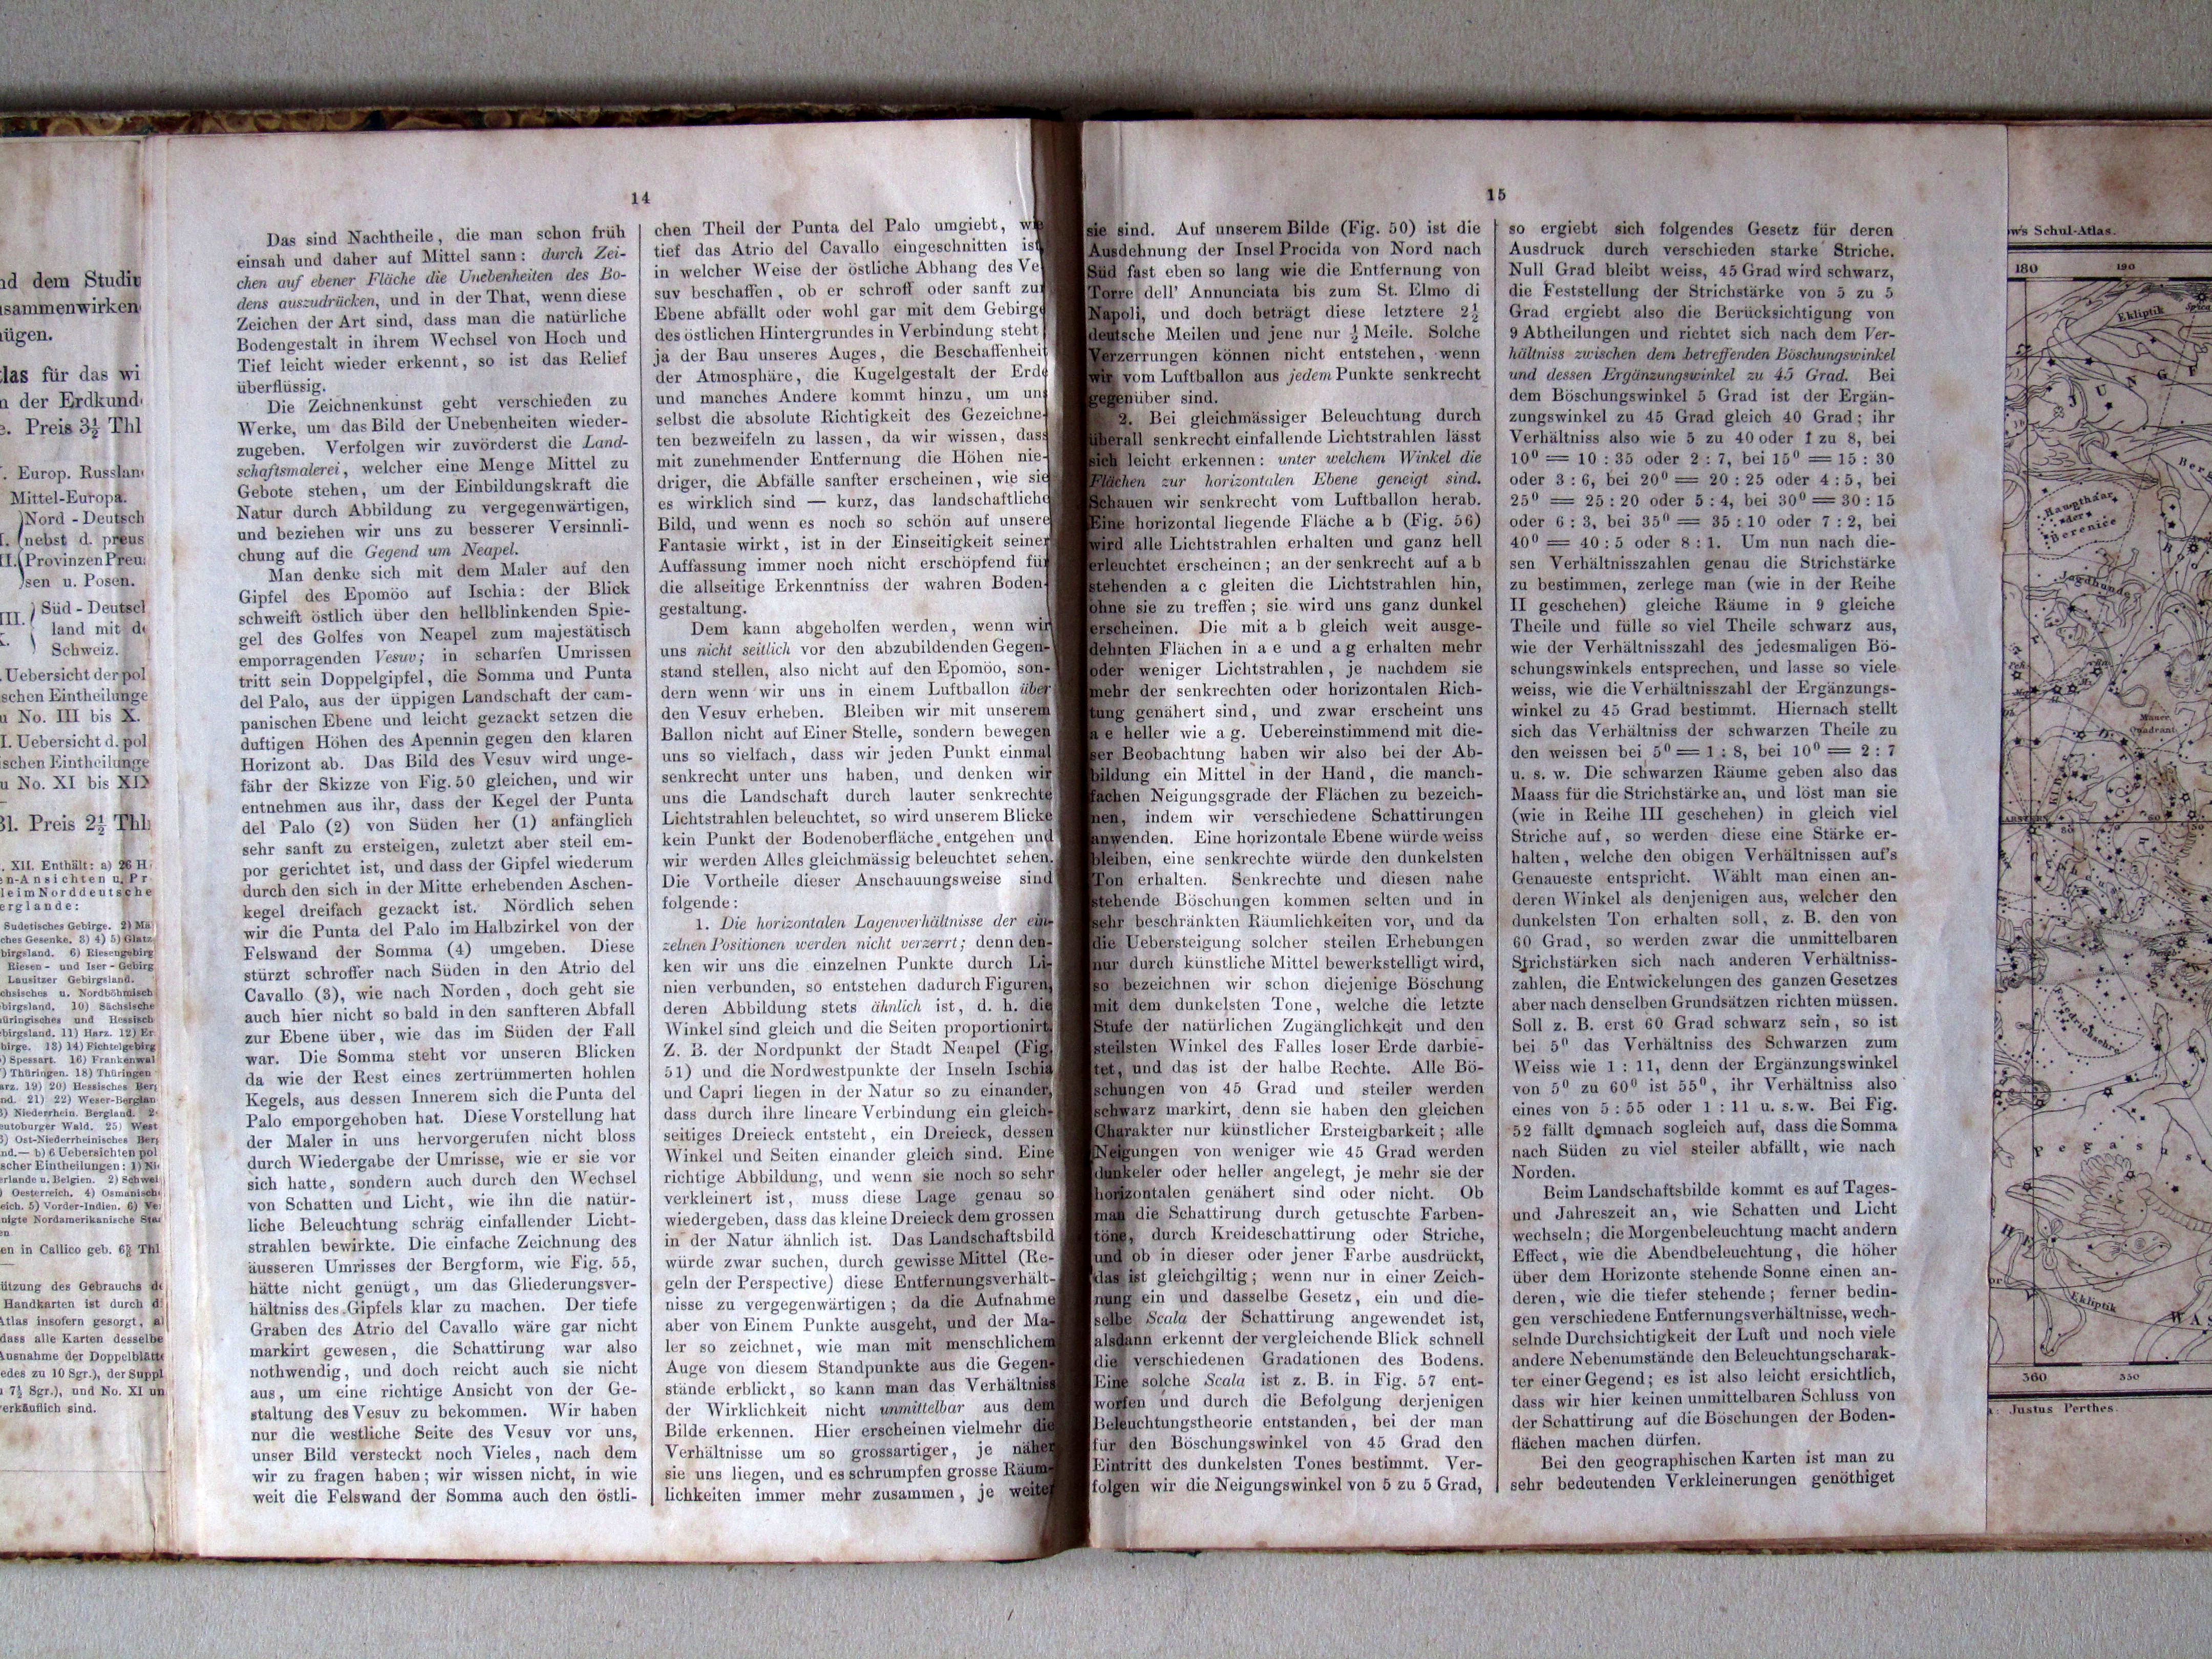 nd dem Studiu
usammenwirken
nügen.
tlas für das wi
n der Erdkund
e. Preis 3½ Thl
Europ. Russlan
Mittel-Europa.
Nord-Deutsch
nebst d. preus
Provinzen Preu
sen u. Posen.
III. Süd-Deutsch
land mit de
Schweiz.
Uebersicht der pol
schen Eintheilunge
u No. III bis X.
I. Uebersicht d. pol
ischen Eintheilunge
u No. XI bis XIX
Bl. Preis 2½ Thl
XII. Enthält: a) 26 H
en-Ansichten u. Pr
leim Norddeutsche
erglande:
Sudetisches Gebirge. 2) Mä
ches Gesenke. 3) 4) 5) Glatz
birgsland. 6) Riesengebirg
Riesen- und Iser-Gebirg
Lausitzer Gebirgsland.
chsisches u. Nordböhmisch
birgsland. 10) Sächsische
hüringisches und Hessisch
birgsland. 11) Harz. 12) Er
birge. 13) 14) Fichtelgebirg
) Spessart. 16) Frankenwal
) Thüringen. 18) Thüringen
arz. 19) 20) Hessisches Berg
nd. 21) 22) Weser-Berglan
3) Niederrhein. Bergland. 2
eutoburger Wald. 25) West
6) Ost-Niederrheinisches Berg
nd.— b) 6 Uebersichten pol
scher Eintheilungen: 1) Ni
erlande u. Belgien. 2) Schwei
) Oesterreich. 4) Osmanisch
eich. 5) Vorder-Indien. 6) Ve
nigte Nordamerikanische Staa
en
en in Callico geb. 6⅔ Thl
ützung des Gebrauchs de
Handkarten ist durch d
Atlas insofern gesorgt, a
dass alle Karten desselbe
Ausnahme der Doppelblätte
edes zu 10 Sgr.), der Suppl
u 7½ Sgr.), und No. XI un
verkäuflich sind.
14
Das sind Nachtheile, die man schon früh
einsah und daher auf Mittel sann: durch Zei-
chen auf ebener Fläche die Unebenheiten des Bo-
dens auszudrücken, und in der That, wenn diese
Zeichen der Art sind, dass man die natürliche
Bodengestalt in ihrem Wechsel von Hoch und
Tief leicht wieder erkennt, so ist das Relief
überflüssig.
Die Zeichnenkunst geht verschieden zu
Werke, um das Bild der Unebenheiten wieder-
zugeben. Verfolgen wir zuvörderst die Land-
schaftsmalerei, welcher eine Menge Mittel zu
Gebote stehen, um der Einbildungskraft die
Natur durch Abbildung zu vergegenwärtigen,
und beziehen wir uns zu besserer Versinnli-
chung auf die Gegend um Neapel.
Man denke sich mit dem Maler auf den
Gipfel des Epomöo auf Ischia: der Blick
schweift östlich über den hellblinkenden Spie-
gel des Golfes von Neapel zum majestätisch
emporragenden Vesuv; in scharfen Umrissen
tritt sein Doppelgipfel, die Somma und Punta
del Palo, aus der üppigen Landschaft der cam-
panischen Ebene und leicht gezackt setzen die
duftigen Höhen des Apennin gegen den klaren
Horizont ab. Das Bild des Vesuv wird unge-
fähr der Skizze von Fig. 50 gleichen, und wir
entnehmen aus ihr, dass der Kegel der Punta
del Palo (2) von Süden her (1) anfänglich
sehr sanft zu ersteigen, zuletzt aber steil em-
por gerichtet ist, und dass der Gipfel wiederum
durch den sich in der Mitte erhebenden Aschen-
kegel dreifach gezackt ist. Nördlich sehen
wir die Punta del Palo im Halbzirkel von der
Felswand der Somma (4) umgeben. Diese
stürzt schroffer nach Süden in den Atrio del
Cavallo (3), wie nach Norden, doch geht sie
auch hier nicht so bald in den sanfteren Abfall
zur Ebene über, wie das im Süden der Fall
war. Die Somma steht vor unseren Blicken
da wie der Rest eines zertrümmerten hohlen
Kegels, aus dessen Innerem sich die Punta del
Palo emporgehoben hat. Diese Vorstellung hat
der Maler in uns hervorgerufen nicht bloss
durch Wiedergabe der Umrisse, wie er sie vor
sich hatte, sondern auch durch den Wechsel
von Schatten und Licht, wie ihn die natür-
liche Beleuchtung schräg einfallender Licht-
strahlen bewirkte. Die einfache Zeichnung des
äusseren Umrisses der Bergform, wie Fig. 55,
hätte nicht genügt, um das Gliederungsver-
hältniss des Gipfels klar zu machen. Der tiefe
Graben des Atrio del Cavallo wäre gar nicht
markirt gewesen, die Schattirung war also
nothwendig, und doch reicht auch sie nicht
aus, um eine richtige Ansicht von der Ge-
staltung des Vesuv zu bekommen. Wir haben
nur die westliche Seite des Vesuv vor uns,
unser Bild versteckt noch Vieles, nach dem
wir zu fragen haben; wir wissen nicht, in wie
weit die Felswand der Somma auch den östli-
chen Theil der Punta del Palo umgiebt, wie
tief das Atrio del Cavallo eingeschnitten ist,
in welcher Weise der östliche Abhang des Ve
suv beschaffen, ob er schroff oder sanft zur
Ebene abfällt oder wohl gar mit dem Gebirge
des östlichen Hintergrundes in Verbindung steht
ja der Bau unseres Auges, die Beschaffenheit
der Atmosphäre, die Kugelgestalt der Erde
und manches Andere kommt hinzu, um uns
selbst die absolute Richtigkeit des Gezeichne-
ten bezweifeln zu lassen, da wir wissen, dass
mit zunehmender Entfernung die Höhen nie-
driger, die Abfälle sanfter erscheinen, wie sie
es wirklich sind — kurz, das landschaftliche
Bild, und wenn es noch so schön auf unsere
Fantasie wirkt, ist in der Einseitigkeit seiner
Auffassung immer noch nicht erschöpfend für
die allseitige Erkenntniss der wahren Boden-
gestaltung.
Dem kann abgeholfen werden, wenn wir
uns nicht seitlich vor den abzubildenden Gegen-
stand stellen, also nicht auf den Epomöo, son-
dern wenn wir uns in einem Luftballon über
den Vesuv erheben. Bleiben wir mit unserem
Ballon nicht auf Einer Stelle, sondern bewegen
uns so vielfach, dass wir jeden Punkt einmal
senkrecht unter uns haben, und denken wir
uns die Landschaft durch lauter senkrechte
Lichtstrahlen beleuchtet, so wird unserem Blicke
kein Punkt der Bodenoberfläche entgehen und
wir werden Alles gleichmässig beleuchtet sehen.
Die Vortheile dieser Anschauungsweise sind
folgende:
1. Die horizontalen Lagenverhältnisse der ein-
zelnen Positionen werden nicht verzerrt; denn den-
ken wir uns die einzelnen Punkte durch Li-
nien verbunden, so entstehen dadurch Figuren,
deren Abbildung stets ähnlich ist, d. h. die
Winkel sind gleich und die Seiten proportionirt.
Z. B. der Nordpunkt der Stadt Neapel (Fig.
51) und die Nordwestpunkte der Inseln Ischia
und Capri liegen in der Natur so zu einander,
dass durch ihre lineare Verbindung ein gleich-
seitiges Dreieck entsteht, ein Dreieck, dessen
Winkel und Seiten einander gleich sind. Eine
richtige Abbildung, und wenn sie noch so sehr
verkleinert ist, muss diese Lage genau so
wiedergeben, dass das kleine Dreieck dem grossen
in der Natur ähnlich ist. Das Landschaftsbild
würde zwar suchen, durch gewisse Mittel (Re-
geln der Perspective) diese Entfernungsverhält-
nisse zu vergegenwärtigen; da die Aufnahme
aber von Einem Punkte ausgeht, und der Ma-
ler so zeichnet, wie man mit menschlichem
Auge von diesem Standpunkte aus die Gegen-
stände erblickt, so kann man das Verhältniss
der Wirklichkeit nicht unmittelbar aus dem
Bilde erkennen. Hier erscheinen vielmehr die
Verhältnisse um so grossartiger, je näher
sie uns liegen, und es schrumpfen grosse Räum-
lichkeiten immer mehr zusammen, je weiter
15
sie sind. Auf unserem Bilde (Fig. 50) ist die
Ausdehnung der Insel Procida von Nord nach
Süd fast eben so lang wie die Entfernung von
Torre dell' Annunciata bis zum St. Elmo di
Napoli, und doch beträgt diese letztere 2½
deutsche Meilen und jene nur ½ Meile. Solche
Verzerrungen können nicht entstehen, wenn
wir vom Luftballon aus jedem Punkte senkrecht
gegenüber sind.
2. Bei gleichmässiger Beleuchtung durch
überall senkrecht einfallende Lichtstrahlen lässt
sich leicht erkennen: unter welchem Winkel die
Flächen zur horizontalen Ebene geneigt sind.
Schauen wir senkrecht vom Luftballon herab.
Eine horizontal liegende Fläche a b (Fig. 56)
wird alle Lichtstrahlen erhalten und ganz hell
erleuchtet erscheinen; an der senkrecht auf a b
stehenden a c gleiten die Lichtstrahlen hin,
ohne sie zu treffen; sie wird uns ganz dunkel
erscheinen. Die mit a b gleich weit ausge-
dehnten Flächen in a e und a g erhalten mehr
oder weniger Lichtstrahlen, je nachdem sie
mehr der senkrechten oder horizontalen Rich-
tung genähert sind, und zwar erscheint uns
a e heller wie a g. Uebereinstimmend mit die-
ser Beobachtung haben wir also bei der Ab-
bildung ein Mittel in der Hand, die manch-
fachen Neigungsgrade der Flächen zu bezeich-
nen, indem wir verschiedene Schattirungen
anwenden. Eine horizontale Ebene würde weiss
bleiben, eine senkrechte würde den dunkelsten
Ton erhalten. Senkrechte und diesen nahe
stehende Böschungen kommen selten und in
sehr beschränkten Räumlichkeiten vor, und da
die Uebersteigung solcher steilen Erhebungen
nur durch künstliche Mittel bewerkstelligt wird,
so bezeichnen wir schon diejenige Böschung
mit dem dunkelsten Tone, welche die letzte
Stufe der natürlichen Zugänglichkeit und den
steilsten Winkel des Falles loser Erde darbie-
tet, und das ist der halbe Rechte. Alle Bö-
schungen von 45 Grad und steiler werden
schwarz markirt, denn sie haben den gleichen
Charakter nur künstlicher Ersteigbarkeit; alle
Neigungen von weniger wie 45 Grad werden
dunkeler oder heller angelegt, je mehr sie der
horizontalen genähert sind oder nicht. Ob
man die Schattirung durch getuschte Farben-
töne, durch Kreideschattirung oder Striche,
und ob in dieser oder jener Farbe ausdrückt,
das ist gleichgiltig; wenn nur in einer Zeich-
nung ein und dasselbe Gesetz, ein und die-
selbe Scala der Schattirung angewendet ist,
alsdann erkennt der vergleichende Blick schnell
die verschiedenen Gradationen des Bodens.
Eine solche Scala ist z. B. in Fig. 57 ent-
worfen und durch die Befolgung derjenigen
Beleuchtungstheorie entstanden, bei der man
für den Böschungswinkel von 45 Grad den
Eintritt des dunkelsten Tones bestimmt. Ver-
folgen wir die Neigungswinkel von 5 zu 5 Grad,
so ergiebt sich folgendes Gesetz für deren
Ausdruck durch verschieden starke Striche.
Null Grad bleibt weiss, 45 Grad wird schwarz,
die Feststellung der Strichstärke von 5 zu 5
Grad ergiebt also die Berücksichtigung von
9 Abtheilungen und richtet sich nach dem Ver-
hältniss zwischen dem betreffenden Böschungswinkel
und dessen Ergänzungswinkel zu 45 Grad. Bei
dem Böschungswinkel 5 Grad ist der Ergän-
zungswinkel zu 45 Grad gleich 40 Grad; ihr
Verhältniss also wie 5 zu 40 oder 1 zu 8, bei
10⁰ = 10 : 35 oder 2 : 7, bei 15⁰ = 15 : 30
oder 3 : 6, bei 20⁰ = 20 : 25 oder 4 : 5, bei
25⁰ = 25 : 20 oder 5 : 4, bei 30⁰ = 30 : 15
oder 6 : 3, bei 35⁰ = 35 : 10 oder 7 : 2, bei
40⁰ = 40 : 5 oder 8 : 1. Um nun nach die-
sen Verhältnisszahlen genau die Strichstärke
zu bestimmen, zerlege man (wie in der Reihe
II geschehen) gleiche Räume in 9 gleiche
Theile und fülle so viel Theile schwarz aus,
wie der Verhältnisszahl des jedesmaligen Bö-
schungswinkels entsprechen, und lasse so viele
weiss, wie die Verhältnisszahl der Ergänzungs-
winkel zu 45 Grad bestimmt. Hiernach stellt
sich das Verhältniss der schwarzen Theile zu
den weissen bei 5⁰ = 1 : 8, bei 10⁰ = 2 : 7
u. s. w. Die schwarzen Räume geben also das
Maass für die Strichstärke an, und löst man sie
(wie in Reihe III geschehen) in gleich viel
Striche auf, so werden diese eine Stärke er-
halten, welche den obigen Verhältnissen auf's
Genaueste entspricht. Wählt man einen an-
deren Winkel als denjenigen aus, welcher den
dunkelsten Ton erhalten soll, z. B. den von
60 Grad, so werden zwar die unmittelbaren
Strichstärken sich nach anderen Verhältniss-
zahlen, die Entwickelungen des ganzen Gesetzes
aber nach denselben Grundsätzen richten müssen.
Soll z. B. erst 60 Grad schwarz sein, so ist
bei 5⁰ das Verhältniss des Schwarzen zum
Weiss wie 1 : 11, denn der Ergänzungswinkel
von 5⁰ zu 60⁰ ist 55⁰, ihr Verhältniss also
eines von 5 : 55 oder 1 : 11 u. s. w. Bei Fig.
52 fällt demnach sogleich auf, dass die Somma
nach Süden zu viel steiler abfällt, wie nach
Norden.
Beim Landschaftsbilde kommt es auf Tages-
und Jahreszeit an, wie Schatten und Licht
wechseln; die Morgenbeleuchtung macht andern
Effect, wie die Abendbeleuchtung, die höher
über dem Horizonte stehende Sonne einen an-
deren, wie die tiefer stehende; ferner bedin-
gen verschiedene Entfernungsverhältnisse, wech-
selnde Durchsichtigkeit der Luft und noch viele
andere Nebenumstände den Beleuchtungscharak-
ter einer Gegend; es ist also leicht ersichtlich,
dass wir hier keinen unmittelbaren Schluss von
der Schattirung auf die Böschungen der Boden-
flächen machen dürfen.
Bei den geographischen Karten ist man zu
sehr bedeutenden Verkleinerungen genöthiget
ow's Schul-Atlas.
180 190
Ekliptik
Spica
J U N G F
Haupthaar
der
Berenice
Jagdhunde
Mauer
Quadrant
Friedrichsehre
P e g a s u s
Ekliptik
WAS
360 350
a: Justus Perthes.